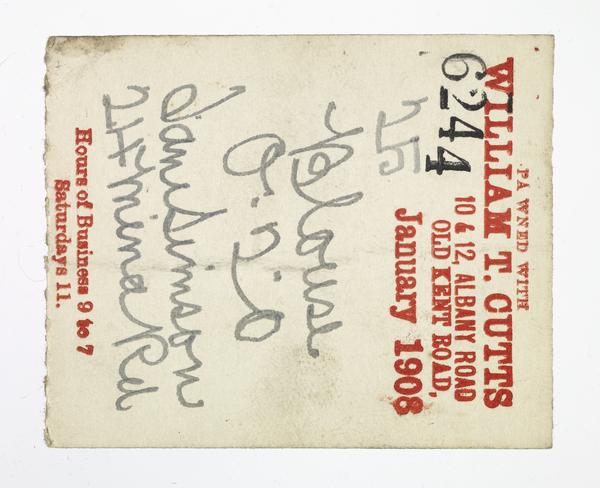 PAWNED WITH
WILLIAM T. CUTTS
6244
10 & 12, ALBANY ROAD
OLD KENT ROAD,
January 1908
25
Blouse
Jane Simson
24 Mina Rd
Hours of Business 9 to 7
Saturdays 11.